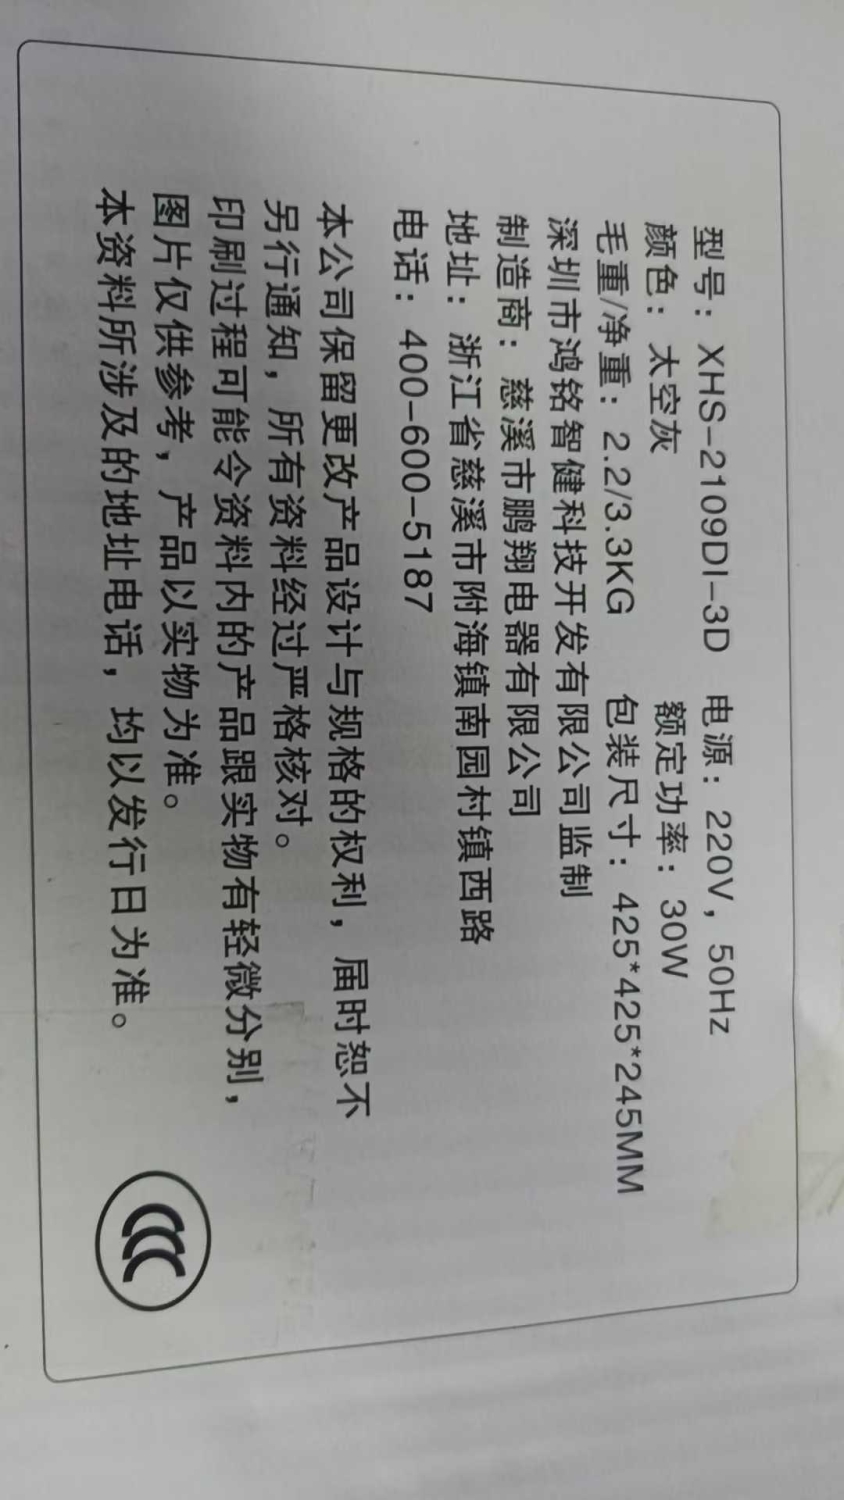 型号：XHS-2109DI-3D 电源：220V，50Hz
颜色：太空灰 额定功率：30W
毛重/净重：2.2/3.3KG 包装尺寸：425*425*245MM
深圳市鸿铭智健科技开发有限公司监制
制造商：慈溪市鹏翔电器有限公司
地址：浙江省慈溪市附海镇南园村镇西路
电话：400-600-5187
本公司保留更改产品设计与规格的权利，届时恕不
另行通知，所有资料经过严格核对。
印刷过程可能令资料内的产品跟实物有轻微分别，
图片仅供参考，产品以实物为准。
本资料所涉及的地址电话，均以发行日为准。
CCC